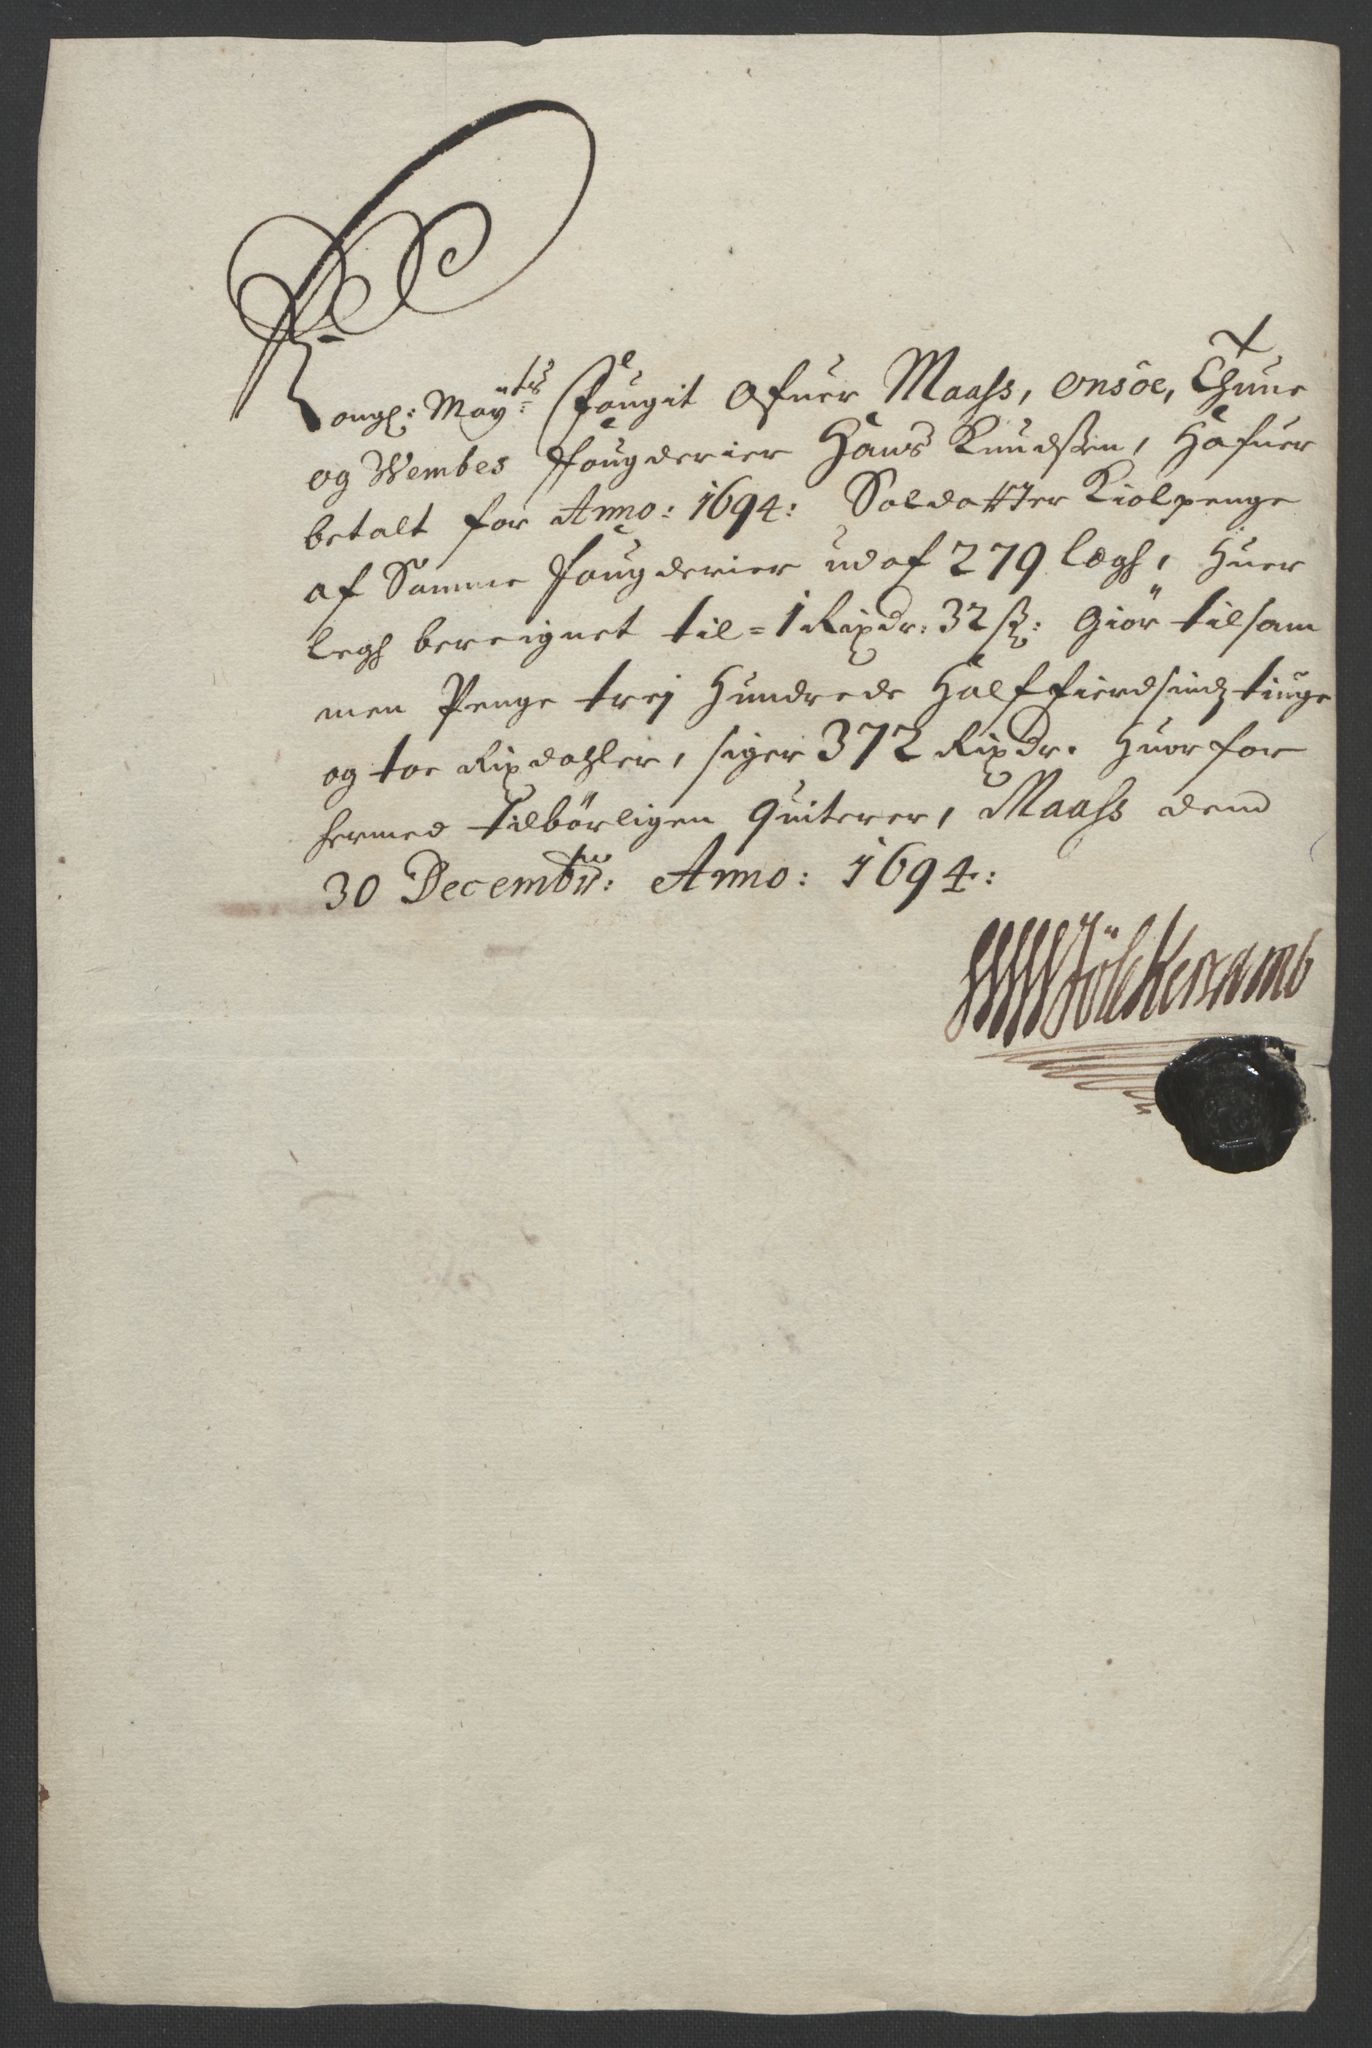 Kongl: May:ts Fougit Ofuer Maass, Onsöe, Thune
og Wembes Fougderier Hans Knudssen, Hafuer
betalt for Anno: 1694: Soldatter Kiolpenge
af Samme Fougderier ud af 279 Legh, Huer
legh bereignet til = 1 Rixdr: 32 ß: Giör tilsam
men Penge trej Hundrede Half fierdsindz tiuge
og toe Rixdahler, siger 372 Rixdr. Huorfor
hermed tilbörligen Quiterer, Maass dend
30 Decembr: Anno: 1694: